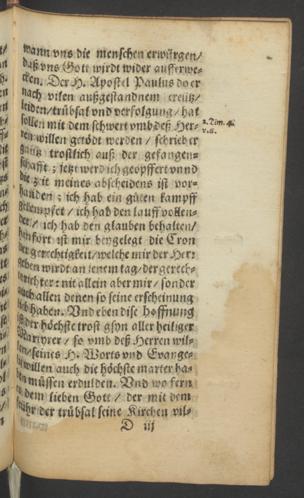 wann vns die menschen erwürgen/
daß vns Gott wirdt wider aufferwe-
cken. Der H. Apostel Paulus do er
nach vilen außgestandnem creütz/
leiden/trübsal vnd verfolgung/hat
sollen mit dem schwert vmb deß Her-
2. Tim. 4.
ren willen getödt werden / schrieb er
v. 6.
gantz trostlich auß der gefangen-
schafft; jetzt werd ich geopffert vnnd
die zeit meines abscheidens ist vor-
handen; ich hab ein gůten kampff
gekempfet / ich hab den lauff vollen-
det / ich hab den glauben behalten/
hinfort ist mir beygelegt die Cron
der gerechtigkeit/welche mir der Herr
geben wirdt an jenem tag/der gerech-
te richter: nit allein aber mir / sonder
auch allen denen so seine erscheinung
lieb haben. Vnd eben dise hoffnung
ist der höchste trost gsyn aller heiliger
Martyrer / so vmb deß Herren wil-
len/seines H. Worts vnd Evange-
willen auch die höchste marter ha-
ben müssen erdulden. Vnd wo fern
dem lieben Gott / der mit dem
der trübsal seine Kirchen vil-
D iij